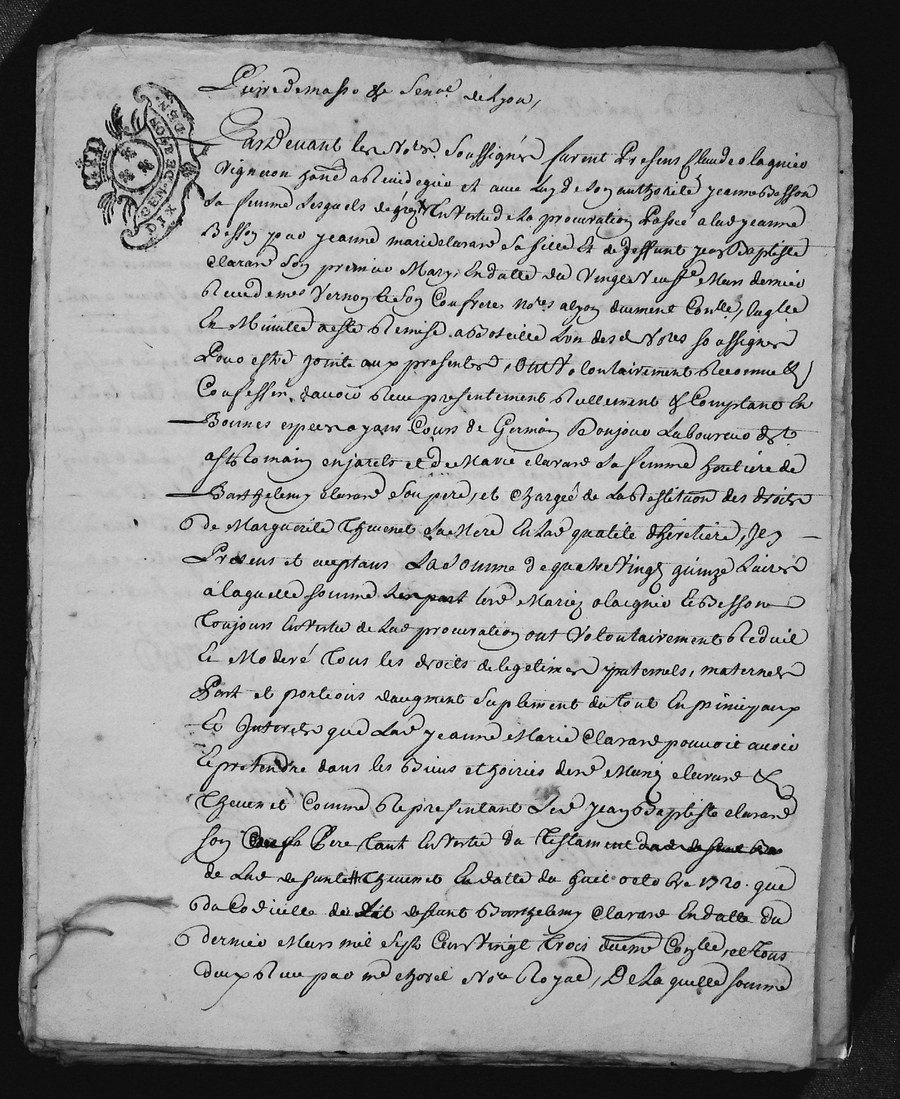 GEN. DE LION. DEN.
DIX
de Lyon,
Pardevant les No.res Soussignés furent Presens Claude olagnier
vigneron et avec Luy de Son authorité jeanne Besson
Sa femme Lesquels de gré En Vertu de La procuration Passée a lad jeanne
Besson par jeanne marie clarard Sa fille & de deffunt jean Baptiste
clarard Son premier Mary, En datte du Vingt Neuf.e Mars dernier
Vernon & Son Confreres No.res a lyon duement Con.lle, Laq.lle
En Minutte a este Remise a L'un des d. No.res Soussignes
Pour estre jointe aux presentes, Ont Volontairement Reconnu &
Confessé, d'avoir Reçu presentement Réellement & Comptant En
Bonnes especes ayans Cours de Germain Bonjour Laboureur de
st Romain en jarets et de Marie clarard Sa femme heritiere de
Barthelemy clarard Son pere, et chargée de La Restitution des droits
de Marguerite Thevenet Sa Mere En Lad. qualité d'heretiere, Icy
Presens et acceptans La Somme de quatre Vingt quinze Livres
à laquelle Somme Les d. Mariez olagnier & Besson
Toujours En Vertu de Lad. procuration ont Volontairement Reduit
& Moderé Tous les droits de legitimes paternels, maternels
Part et portions d'augment Suplement du Tout En principaux
Et Interets que Lad. jeanne Marie Clarard pouvoit avoir
Et pretendre dans les Biens et hoiries des d. Mariez clarard &
Thevenet Comme Representant Led. jean Baptiste clarard
Son Pere Tant En Vertu du Testament
de Lad. deffunte Thevenet En datte du huit octobre 1720. que
du Codicille dudit deffunt Barthelemy Clarard En datte du
dernier Mars mil Sept Cens Vingt Trois duem.t Con.lle, et Tous
deux Reçus par m.e No.re Royal, De Laquelle Somme